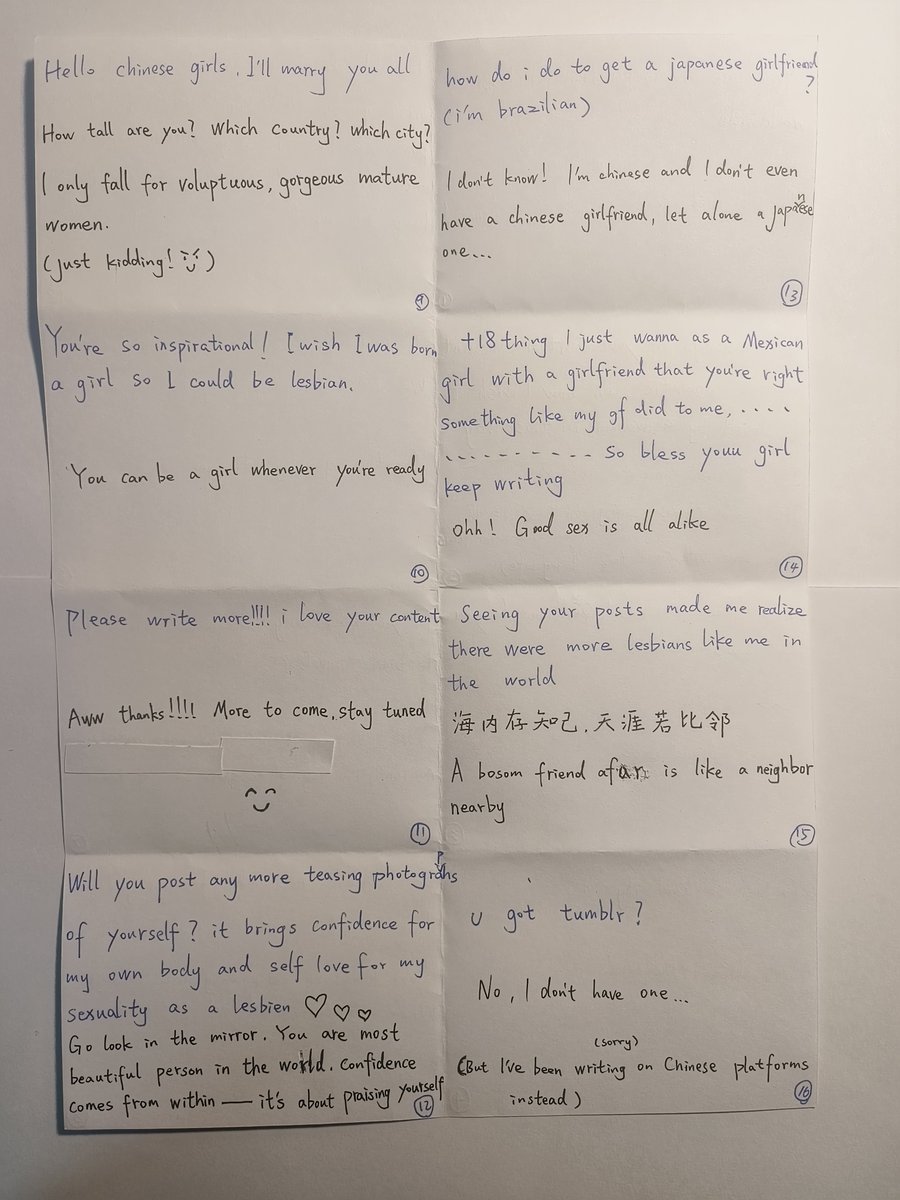 Hello chinese girls, I'll marry you all
How tall are you? Which country? which city?
I only fall for voluptuous, gorgeous mature
women.
(just kidding!)
9
You're so inspirational! I wish I was born
a girl so I could be lesbian.
You can be a girl whenever you're ready
10
Please write more!!!! i love your content
Aww thanks!!!! More to come, stay tuned
11
Will you post any more teasing photographs
of yourself? it brings confidence for
my own body and self love for my
sexuality as a lesbien ♡♡♡
Go look in the mirror. You are most
beautiful person in the world. Confidence
comes from within — it's about praising yourself
12
how do i do to get a japanese girlfriend
?
(i'm brazilian)
I don't know! I'm chinese and I don't even
have a chinese girlfriend, let alone a japanese
one...
13
+18 thing I just wanna as a Mexican
girl with a girlfriend that you're right
something like my gf did to me, ....
.......... so bless youu girl
keep writing
Ohh! Good sex is all alike
14
Seeing your posts made me realize
there were more lesbians like me in
the world
海内存知己,天涯若比邻
A bosom friend afar is like a neighbor
nearby
15
u got tumblr?
No, I don't have one...
(sorry)
(But I've been writing on Chinese platforms
instead)
16